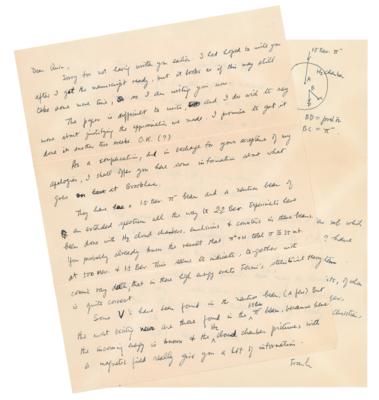 Dear Anna,
Sorry for not having written you earlier. I had hoped to write you
after I got the manuscript ready, but it looks as if this may still
take some more time, so I am writing you now.
The paper is difficult to write, and I do wish to say
more about justifying the approximation we made. I promise to get it
done in another two weeks O.K. (?)
As a compensation, and in exchange for your acceptance of my
apologies, I shall offer you here some information about what
goes on here at Brookhaven.
They have a 1.5 Bev π⁻ beam and a neutron beam of
an extended spectrum all the way to 2.2 Bev. Experiments have
been done with H₂ cloud chambers, emulsions & counters in these beams
You probably know the result that
at 500 Mev & 1.5 Bev. This seems to indicate, together with
cosmic ray data, that in these high energy events Fermi's statistical theory
is quite correct.
Some V's have been found in the neutron beam, (a few) but
the most exciting are those found in the π⁻ beam, because here
the incoming energy is known & the H₂ cloud chamber pictures with
a magnetic field really give you a lot of information.
Frank
1.5 Bev π⁻
H₂ chamber
A
B
BD =
BC = π⁻